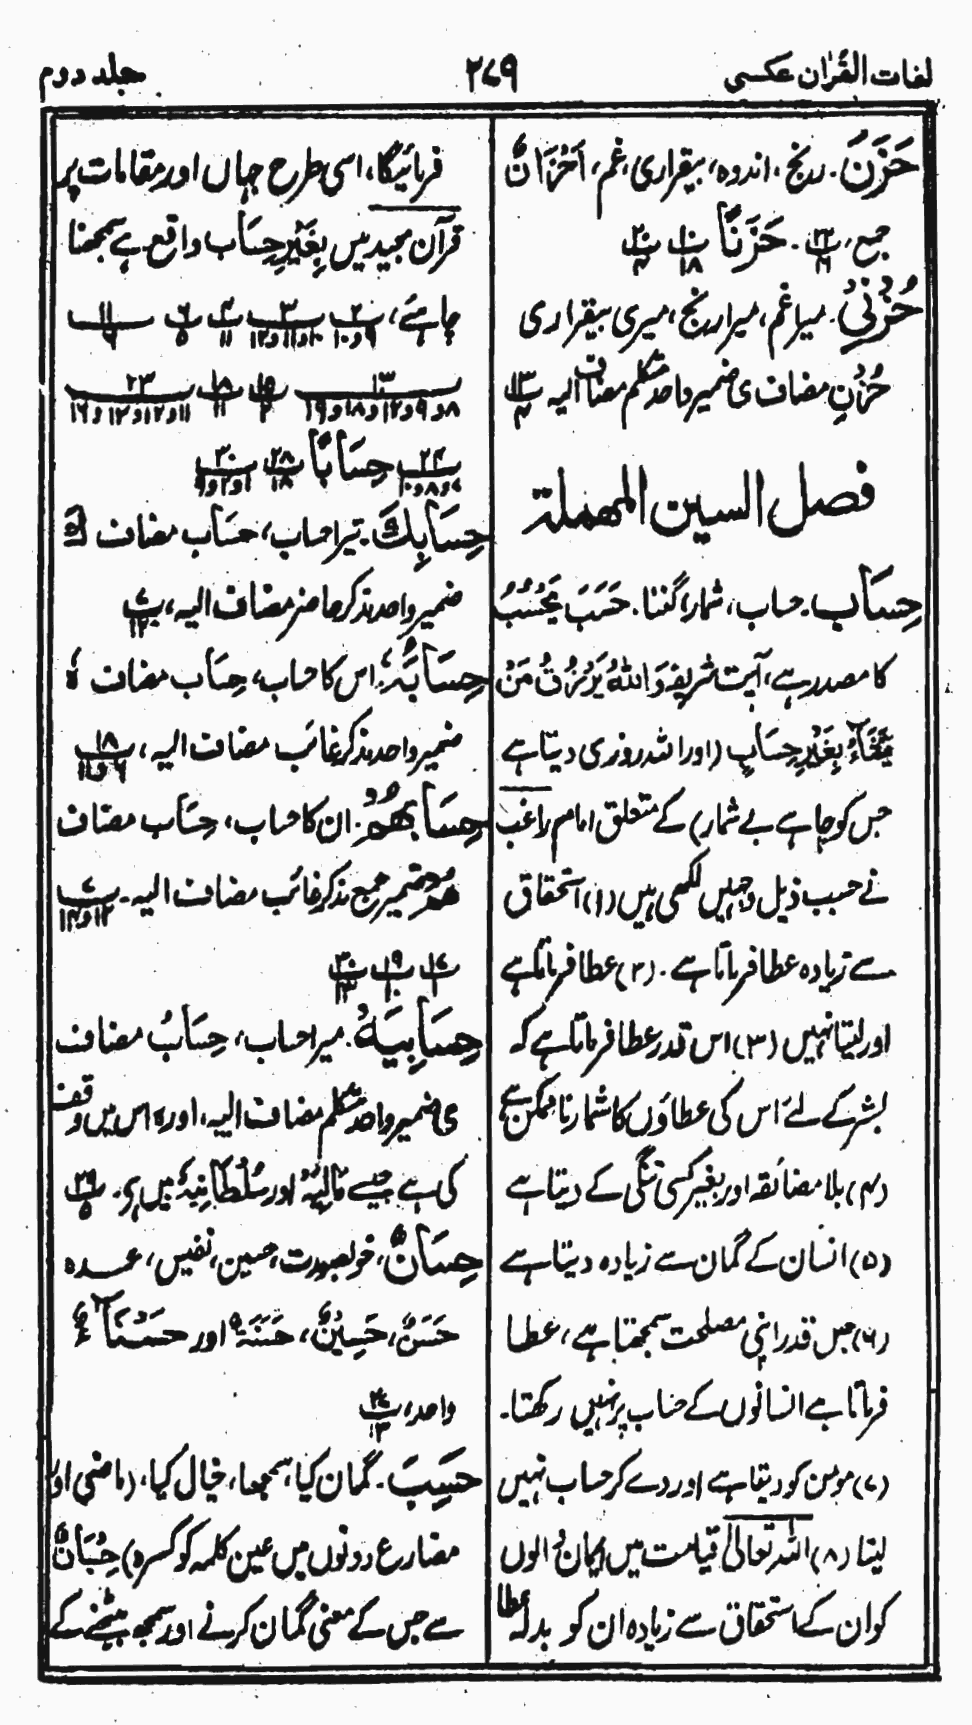 لغات القرآن عکسی
۲۷۹
جلد دوم
حَزَنَ. رنج، اندوہ، بیقراری، غم، اَحْزَانٌ
جمع، ۲۲/۱۶. حَزَنًا ۱۰/۱۸ ۲۰/۴
حُزْنِیْ. میرا غم، میرا رنج، میری بیقراری
حُزْنِ مضاف ی ضمیر واحد متکلم مضاف الیہ ۱۳/۴
فصل السین المہملۃ
حِسَاب. حساب، شمار، گننا. حَسَبَ یَحْسُبُ
کا مصدر ہے، آیت شریفہ وَاللّٰہُ یَرْزُقُ مَنْ
یَّشَآءُ بِغَیْرِ حِسَابٍ (اور اللہ روزی دیتا ہے
جس کو چاہے بے شمار) کے متعلق امام راغب
نے حسب ذیل وجہیں لکھی ہیں (۱) استحقاق
سے زیادہ عطا فرماتا ہے. (۲) عطا فرماتا ہے
اور لیتا نہیں (۳) اس قدر عطا فرماتا ہے کہ
بشر کے لئے اس کی عطاؤں کا شمار ناممکن ہے
(۴) بلا مضائقہ اور بغیر کسی تنگی کے دیتا ہے
(۵) انسان کے گمان سے زیادہ دیتا ہے
(۶) جس قدر اپنی مصلحت سمجھتا ہے، عطا
فرماتا ہے انسانوں کے حساب پر نہیں رکھتا.
(۷) مومن کو دیتا ہے اور دے کر حساب نہیں
لیتا (۸) اللہ تعالیٰ قیامت میں ایمان والوں
کو ان کے استحقاق سے زیادہ ان کو بدلہ عطا
فرمائیگا، اسی طرح جہاں اور مقامات پر
قرآن مجید میں بِغَیْرِ حِسَاب واقع ہے سمجھنا
چاہئے، ۲/۹و۱۰ ۳/۱۰و۱۱و۱۲ ۴/۱۱ ۶/۵ ۱۱/۶
۱۳/۸و۹و۱۲و۱۸و۱۹ ۱۵/۲ ۱۸/۱۱ ۲۳/۱۱و۱۲و۱۳و۱۶
۲۴/۷و۸و۱۰ حِسَابًا ۲۸/۱۸ ۳۰/۱و۲و۹
حِسَابِكَ. تیرا حساب، حساب مضاف كَ
ضمیر واحد مذکر حاضر مضاف الیہ، ۷/۱۲
حِسَابَہٗ. اس کا حساب، حِسَاب مضاف ہٗ
ضمیر واحد مذکر غائب مضاف الیہ، ۱۸/۶و۱۱
حِسَابُھُمْ. ان کا حساب، حِسَاب مضاف
ھُمْ ضمیر جمع مذکر غائب مضاف الیہ. ۷/۱۲و۱۴
۱۷/۱ ۱۹/۱۰ ۳۰/۱۳
حِسَابِیَہْ. میرا حساب، حِسَابُ مضاف
ی ضمیر واحد متکلم مضاف الیہ، اور ہ اس میں وقف
کی ہے جیسے مَالِیَہْ اور سُلْطَانِیَہْ میں ہی. ۲۹/۵
حِسَانٌ، خوبصورت، حسین، نفیس، عمدہ
حَسَنٌ، حَسِیْنٌ، حَسَنَۃٌ اور حَسْنَآءُ
واحد، ۲۷/۱۳
حَسِبَ. گمان کیا، سمجھا، خیال کیا، (ماضی اور
مضارع دونوں میں عین کلمہ کو کسرہ) حِسْبَانٌ
سے جس کے معنی گمان کرنے اور سمجھ بیٹھنے کے